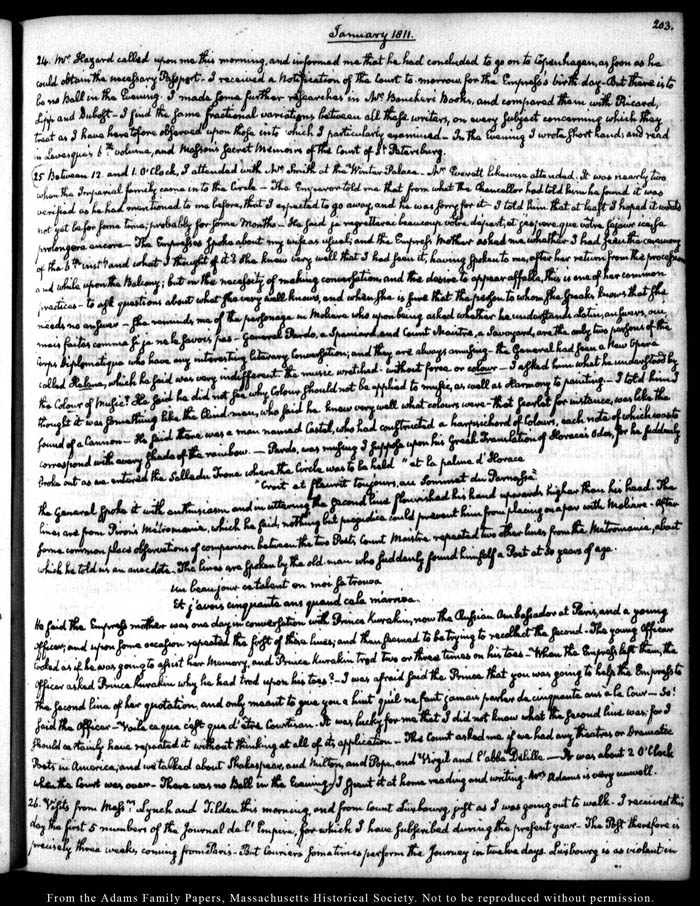 203.
January 1811.
24. Mr. Hazard called upon me this morning, and informed me that he had concluded to go on to Copenhagen, as soon as he
could obtain the necessary Passport. I received a Notification of the Court to-morrow for the Empress's birth day. But there is to
be no Ball in the Evening. I made some further researches in Mr. Bouchers Books, and compared them with Ricard,
and Dubost. I find the same fractional variations between all these writers, on every subject concerning which they
treat as I have heretofore observed upon those into which I particularly examined. In the Evening I wrote short hand; and read
in Levesque's 6th. volume, and Masson's Secret Memoirs of the Court of St. Petersburg.
25 Between 12. and 1. O'Clock, I attended with Mr. Smith at the Winter Palace. Mr. Everett likewise attended. It was nearly two
when the Imperial family came in to the Circle — The Emperor told me that from what the Chancellor had told him he found it was
verified as he had mentioned to me before, that I expected to go away, and he was sorry for it — I told him that at least I hoped it would
not yet be for some time; probably for some Months — He said je regretterai beaucoup vôtre départ, et j'espere que vôtre sejour ici se
prolongera encore — The Empress spoke about my wife as usual; and the Empress Mother asked me whether I had seen the ceremony
of the 6th. inst: and what I thought of it? She knew very well that I had seen it, having spoken to me, after her return from the procession
and while upon the Balcony; but in the necessity of making conversation, and the desire to appear affable, this is one of her common
practices — to ask questions about what she very well knows, and when she is sure that the person to whom she speaks knows that she
needs no answer — She reminds me of the personage in Moliere who upon being asked whether he understands Latin, answers, oui,
mais faites comme si je ne le savois pas — General Pardo, a Spaniard, and Count Maistre, a Savoyard, are the only two persons of the
Corps diplomatique who have any interesting literary Conversation; and they are always amusing — the General had seen a New Opera
called Helena, which he said was very indifferent — the music wretched — without force or colour — I asked him what he understood by
the Colour of Music? He said he did not see why Colour should not be applied to music, as well as Harmony to painting — I told him I
thought it was something like the blind-man, who said he knew very well what colours were — that scarlet for instance, was like the
sound of a Cannon — He said there was a man named Castel, who had constructed a harpsichord of Colours, each note of which was to
correspond with every shade of the rainbow. — Pardo, was musing I suppose upon his Greek Translation of Horace's Odes, for he suddenly
broke out as we entered the Salle du Trone where the Circle was to be held "et la palme d'Horace
"Croit et fleurit toujours, au Sommet du Parnasse"
The General spoke it with enthusiasm and in uttering the second line flourished his hand upwards higher than his head. The
lines are from Piron's Métromanie, which he said, nothing but prejudice could prevent him from placing on a par with Moliere — After
some common place observations of comparison between the two Poets, Count Maistre repeated two other lines from the Metromanie, about
which he told us an anecdote. The lines are spoken by the old man who suddenly found himself a Poet at 50 years of age
Un beau jour ce talent en moi se trouva
Et j'avois cinquante ans quand cela m'arriva.
He said the Empress mother was one day in conversation with Prince Kurakin, now the Russian Ambassador at Paris, and a young
officer; and upon some occasion repeated the first of these lines; and then seemed to be trying to recollect the second — The young Officer
looked as if he was going to assist her Memory, and Prince Kurakin trod two or three times on his toes — When the Empress left them, the
Officer asked Prince Kurakin why he had trod upon his toes? — I was afraid said the Prince that you was going to help the Empress to
the second line of her quotation, and only meant to give you a hint qu'il ne faut jamais parler de cinquante ans à la Cour — So!
said the Officer — Voila ce que c'est que d'être Courtisan. It was lucky for me that I did not know what the second line was; for I
should certainly have repeated it without thinking at all of its application — The Count asked me if we had any theatres or Dramatic
Poets in America; and we talked about Shakespear, and Milton, and Pope, and Virgil and l'abbé Delille — It was about 2 O'Clock
when the Court was over — There was no Ball in the Evening. I spent it at home reading and writing. Mrs. Adams is very unwell.
26. Visits from Messrs. Lynch and Tilden this morning, and from Count Luxbourg, just as I was going out to walk. I received this
day the first 5 numbers of the Journal de l'Empire, for which I have subscribed during the present year — The Post therefore is
precisely three weeks, coming from Paris — But Couriers sometimes perform the Journey in twelve days. Luxbourg is as violent in
From the Adams Family Papers, Massachusetts Historical Society. Not to be reproduced without permission.